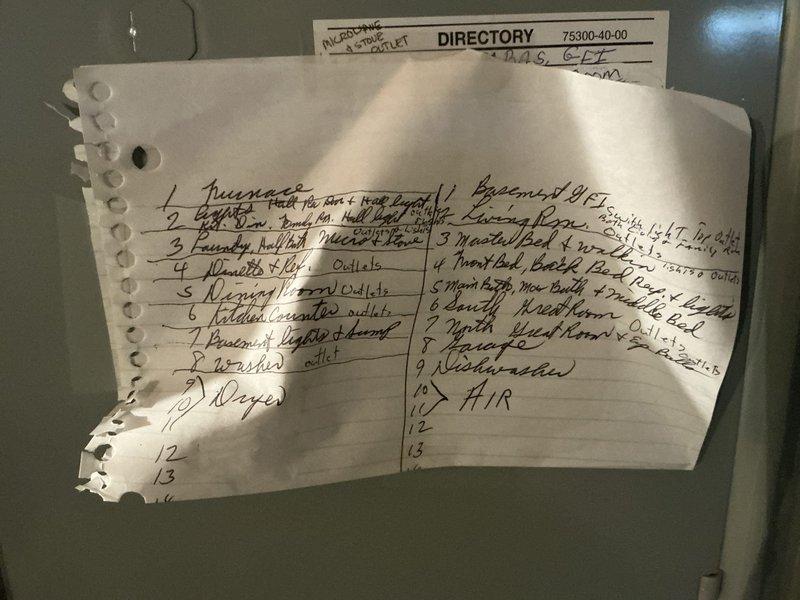 MICROWAVE
& STOVE
OUTLET
DIRECTORY 75300-40-00
GFI
1 Furnace
Lights Hall Hall light
2 Kit. Din. Family Rm. Hall light outlets
Outlets & Lights
3 Laundry, Half Bath Micro & Stove
4 Dinette & Ref. Outlets
5 Dining Room Outlets
6 Kitchen Counter Outlets
7 Basement lights & Sump
8 Washer outlet
9
10 Dryer
11
12
13
14
1 Basement GFI
Switch LighT Top Outlet
2 Living Rm. Both Living & Family Room
Outlets
3 Master Bed & Walkin Lights & Outlets
4 Front Bed, Back Bed Rec. & lights
5 Main Bath, Mas Bath & Middle Bed
6 South Great Room Outlets
7 North Great Room & Outlets
8 Garage
9 Dishwasher
10 AIR
11
12
13